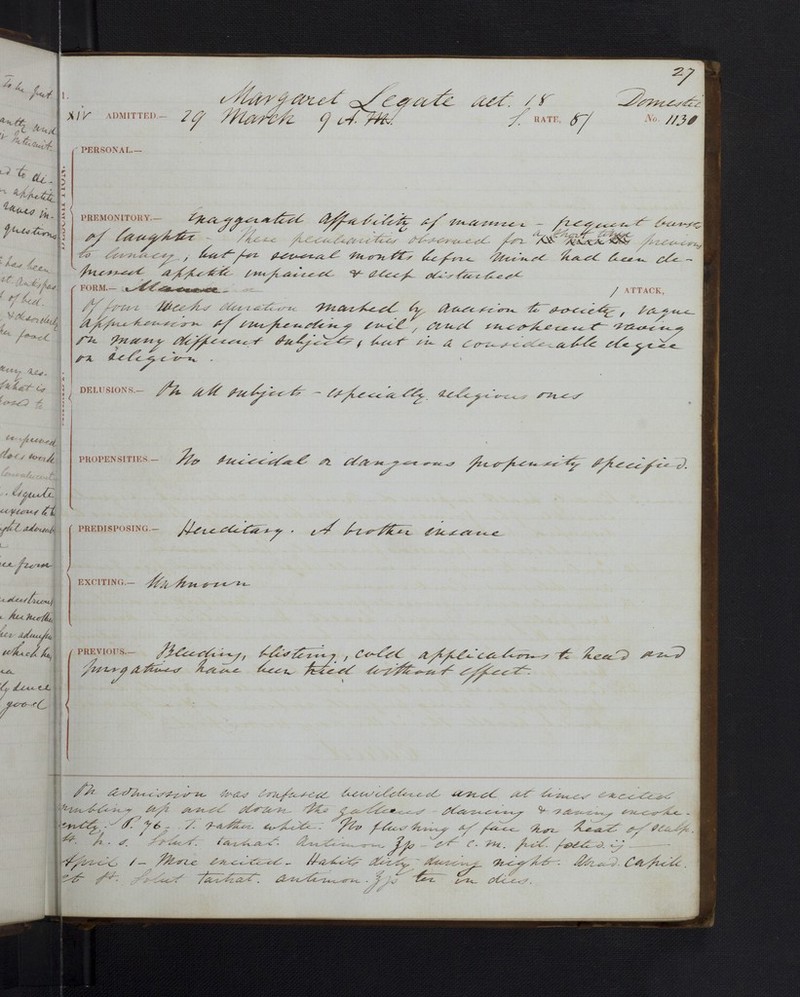 27
1.
Margaret Legate aet. 18 Domestic
XIV ADMITTED.— 29 March 9 A.M. S. RATE, 8/ No. 1130
PERSONAL.—
PREMONITORY.— Exaggerated affability of manner - frequent bursts
of laughter - These peculiarities observed for a short time previous
to lunacy, but for several months before mind had been de-
mened appetite impaired & sleep disturbed
FORM.— Mania - 1 ATTACK,
Of four weeks duration marked by aversion to society, vague
apprehension of impending evil, and incoherent raving
on many different subjects, but in a considerable degree
on religion.
DELUSIONS.— On all subjects - especially religious ones
PROPENSITIES.— No suicidal or dangerous propensity specified.
PREDISPOSING.— Hereditary. A brother insane
EXCITING.— Unknown
PREVIOUS.— Bleeding, blistering, cold applications to head and
purgatives have been tried without effect.
On admission was confused bewildered and at times excited
rambling up and down the galleries - dancing & raving incohe-
rently. P. 76. T. rather white. No flushing of face nor heat of scalp.
H. s. Solut. tartrat. antimon ʒp - et c. m. pil. foetid. ij
April 1 - More excited. Habits dirty during night. Abrad. capill.
et St. Solut tartrat. antimon. ʒjs ter in dies.